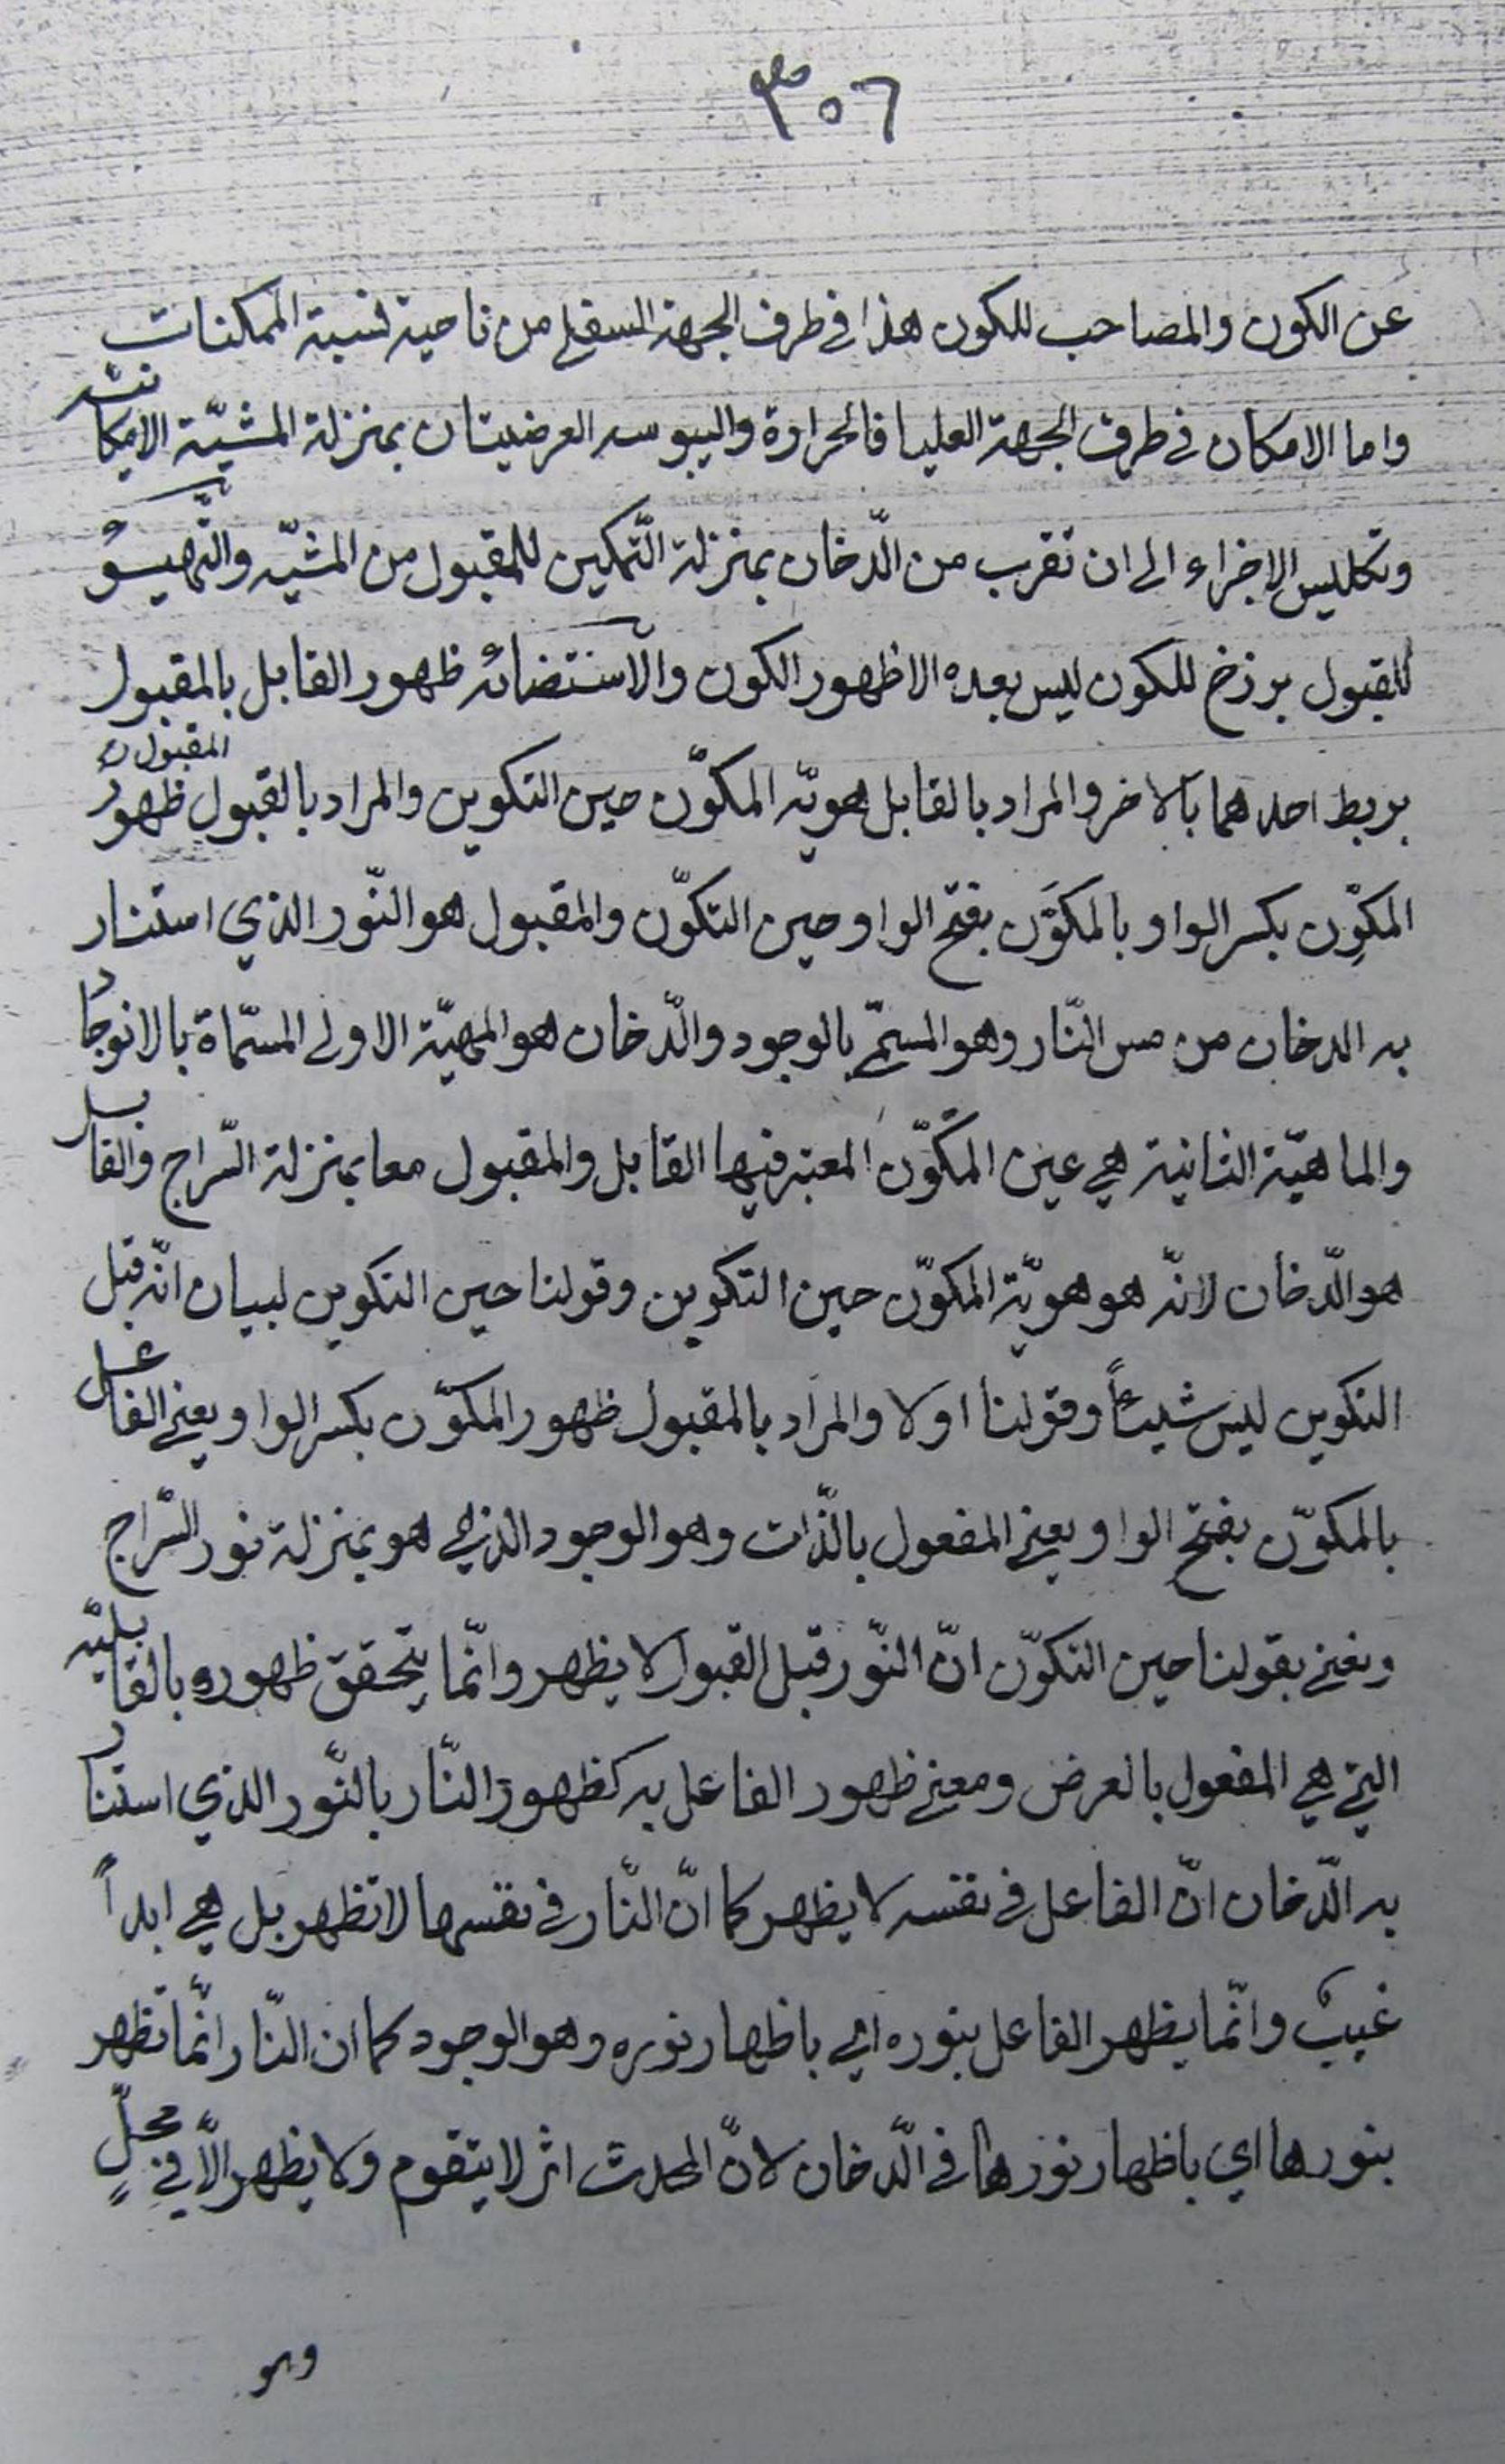 ٣٠٦
عن الكون والمصاحب للكون هذا في طرف الجهة السفلى من ناحية نسبة الممكنات
واما الامكان في طرف الجهة العليا فالحرارة واليبوسه العرضيتان بمنزلة المشيّة الامكانيّه
وتكليس الاجزاء الى ان تقرب من الدّخان بمنزلة التّمكين للمقبول من المشيّه والتّهيّؤ
للقبول برزخ للكون ليس بعده الا ظهور الكون والاستضائه ظهور القابل بالمقبول
بربط احدهما بالاخر والمراد بالقابل هويّة المكوّن حين التكوين والمراد بالقبول المقبول ن ظهور
المكوِّن بكسر الواو بالمكوَّن بفتح الواو حين التكوّن والمقبول هو النّور الذي استنار
به الدخان من مس النّار وهو المسمّى بالوجود والدّخان هو المهيّة الاولى المسمّاة بالانوجاد
والماهيّة الثانية هي عين المكَوّن المعتبر فيها القابل والمقبول معا بمنزلة السّراج والقابل
هو الدّخان لانّه هو هويّة المكوّن حين التكوين وقولنا حين التكوين لبيان انّه قبل
التكوين ليس شيئاً وقولنا اولا والمراد بالمقبول ظهور المكوّن بكسر الواو يعني الفاعل
بالمكوّن بفتح الواو يعني المفعول بالذّات وهو الوجود الذي هو بمنزلة نور السّراج
ونعني بقولنا حين التكوّن انّ النّور قبل القبول لا يظهر وانّما يتحقق ظهوره بالقابليّه
التي هي المفعول بالعرض ومعنى ظهور الفاعل به كظهور النّار بالنّور الذي استنار
به الدّخان انّ الفاعل في نفسه لا يظهر كما انّ النّار في نفسها لا تظهر بل هي ابداً
غيب وانّما يظهر الفاعل بنوره اي باظهار نوره وهو الوجود كما ان النّار انّما تظهر
بنورها اي باظهار نورها في الدّخان لانّ المحدث اثر لا يتقوم ولا يظهر الّا في محلٍّ
وهو